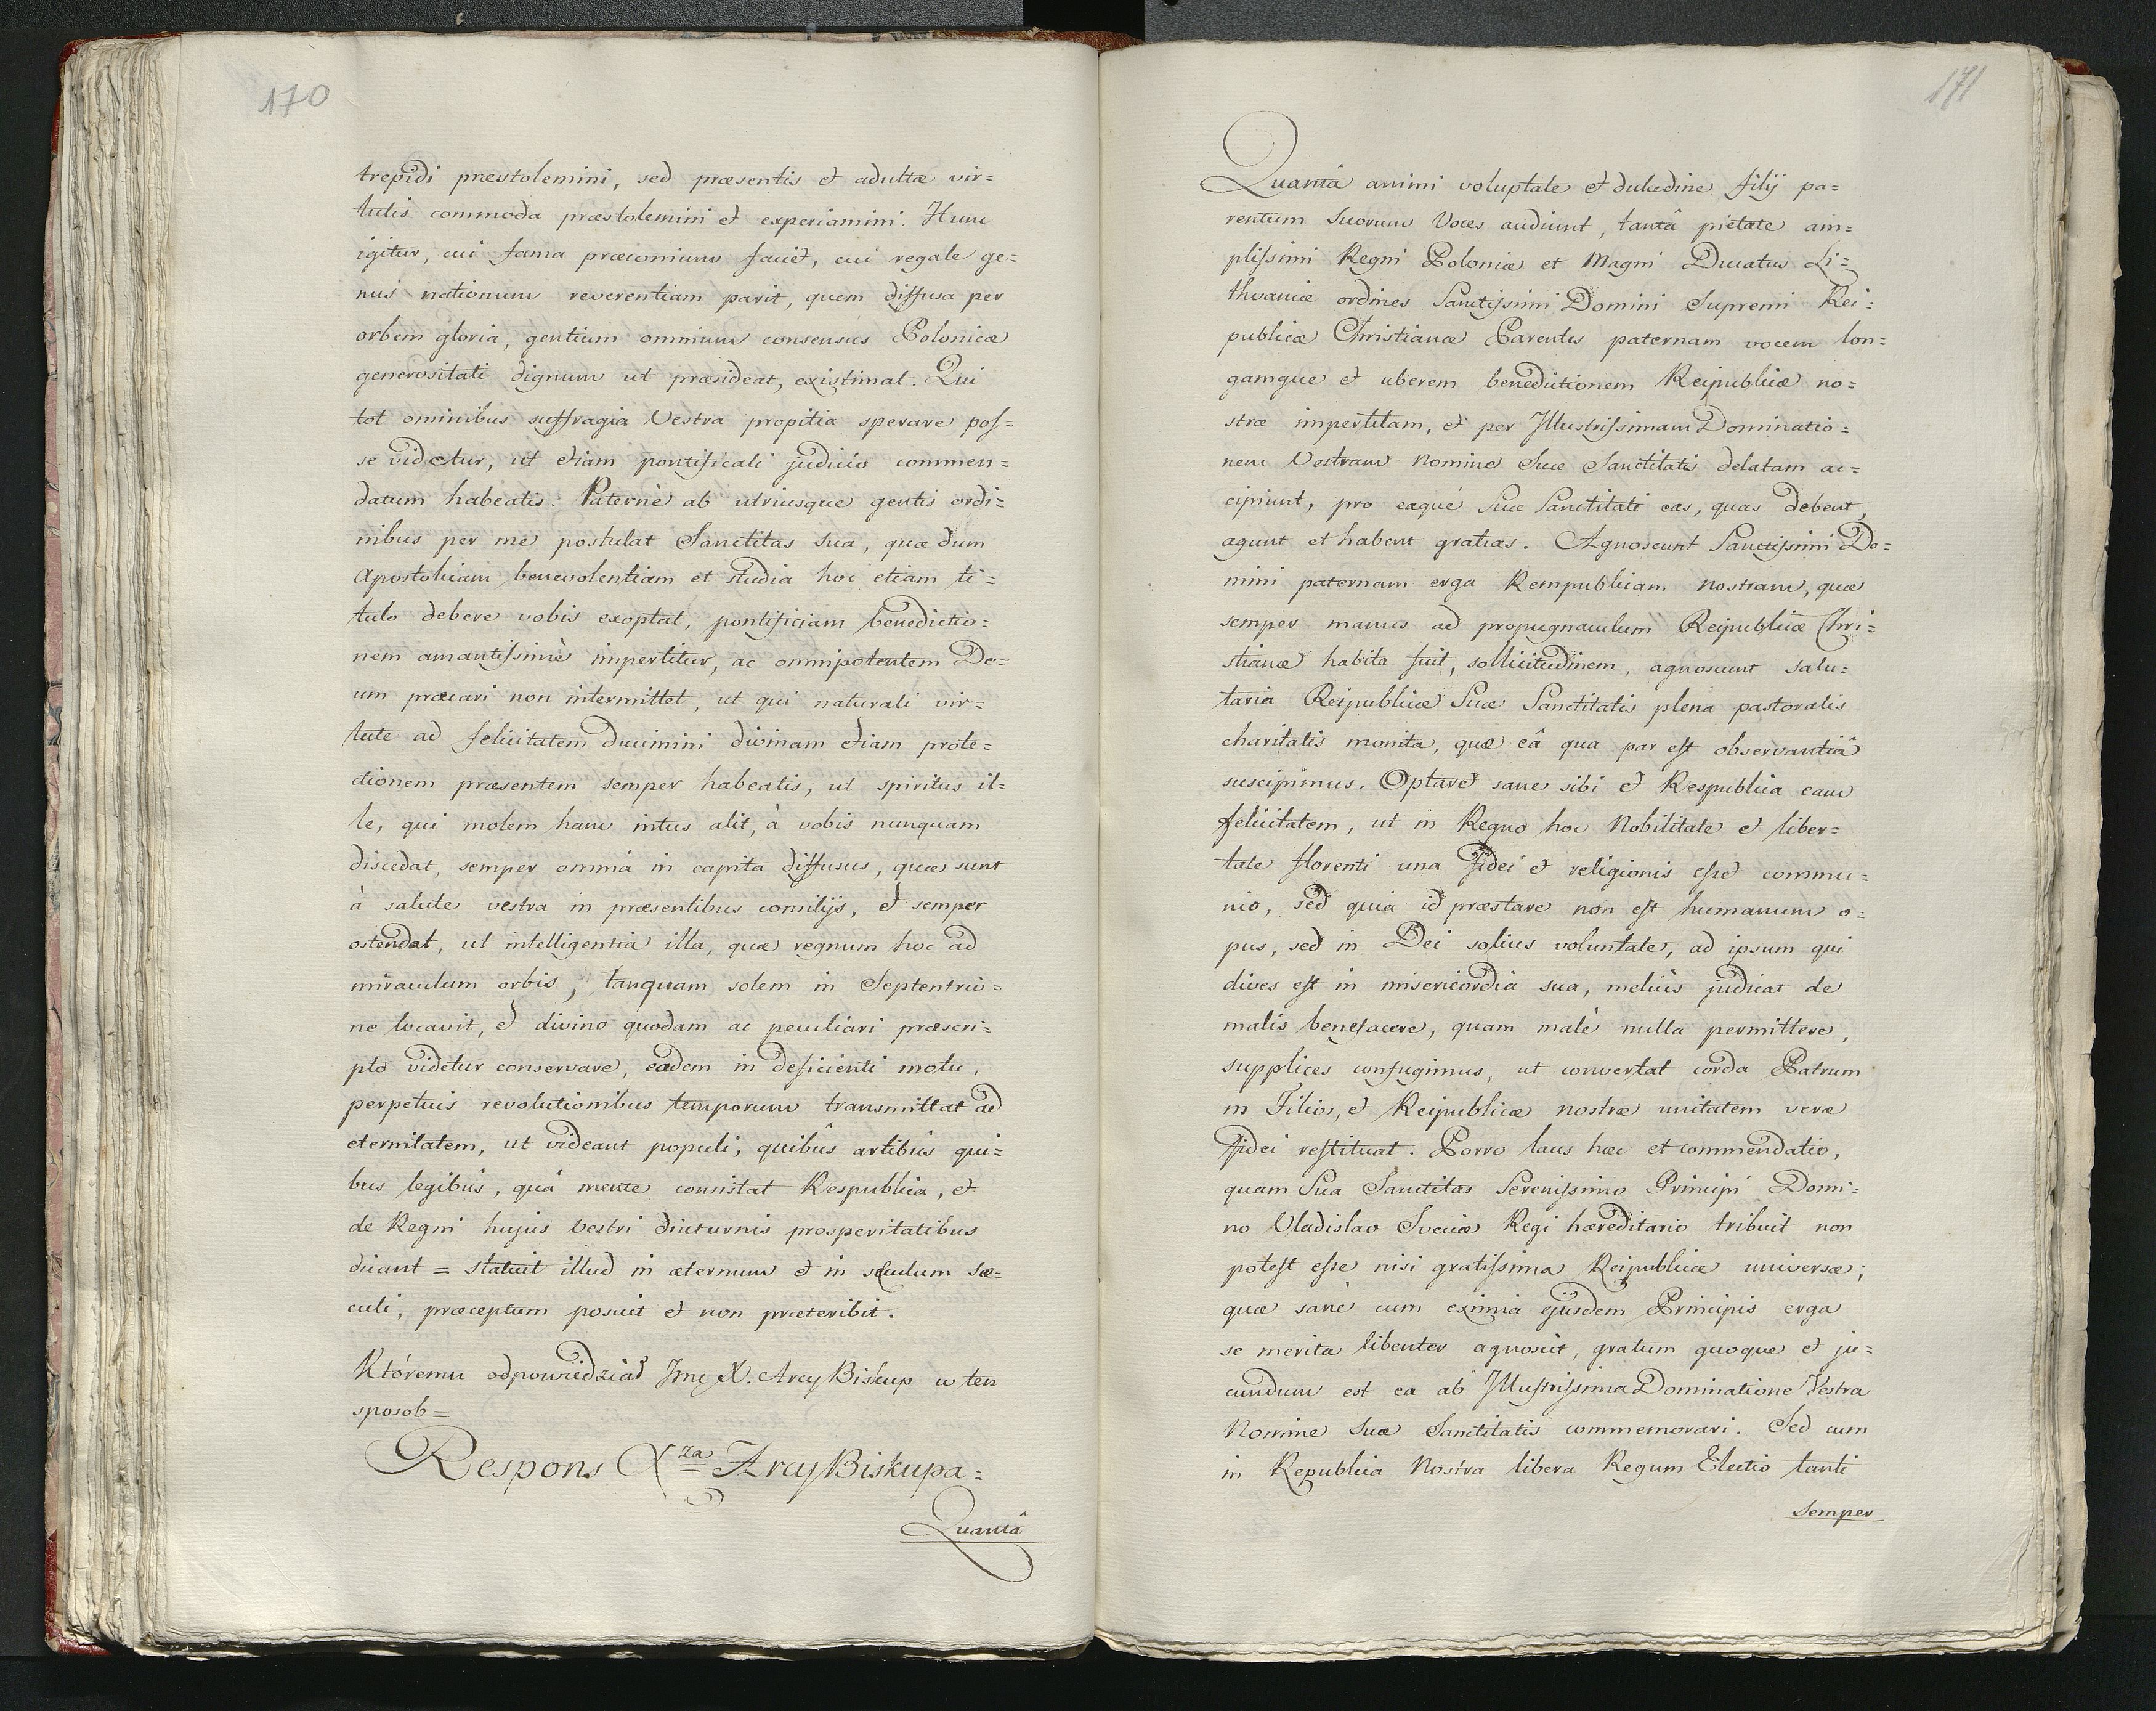 170
trepidi præstolemini, sed præsentis et adultæ vir=
tutis commoda præstolemini et experiamini. Hunc
igitur, cui fama præconium faciet, cui regale ge=
nus nationum reverentiam parit, quem diffusa per
orbem gloria, gentium omnium consensus Polonicæ
generositati dignum ut præsideat, existimat. Qui
tot ominibus suffragia Vestra propitia sperare pos=
se videtur, ut etiam pontificali judicio commen=
datum habeatis. Paternè ab utriusque gentis ordi=
nibus per me postulat Sanctitas Sua, quæ dum
Apostolicam benevolentiam et studia hoc etiam ti=
tulo debere vobis exoptat, pontificiam benedictio=
nem amantissimè impertitur, ac omnipotentem De=
um præcari non intermittet, ut qui naturali vir=
tute ad felicitatem ducimini divinam etiam prote=
ctionem præsentem semper habeatis, ut spiritus il=
le, qui molem hanc intus alit, à vobis nunquam
discedat, semper omnia in capita diffusus, quæ sunt
à salute vestra in præsentibus consilijs, et semper
ostendat, ut intelligentia illa, quæ regnum hoc ad
miraculum orbis, tanquam solem in Septentrio=
ne locavit, et divino quodam ac peculiari præscri=
pto videtur conservare, eadem in deficienti motu,
perpetuis revolutionibus temporum transmittat ad
eternitatem, ut videant populi, quibûs artibûs qui=
bus legibûs, quâ mente consistat Respublica, et
de Regni hujus Vestri diuturnis prosperitatibus
dicant = statuit illud in æternum et in seculum sæ=
culi, præceptum posuit et non præteribit.
Któremu odpowiedział Jmć X. Arcy Biskup w ten
sposob =
Respons Xza Arcy Biskupa =
Quantâ
171
Quantâ animi voluptate et dulcedine filij pa=
rentum Suorum Voces audiunt, tantâ pietate am=
plissimi Regni Poloniæ et Magni Ducatus Li=
thvaniæ ordines Sanctissimi Domini Supremi Rei=
publicæ Christianæ Parentis paternam vocem lon=
gamque et uberem benedictionem Reipublicæ no=
stræ impertitam, et per Illustrissimam Dominatio=
nem Vestram Nomine Suæ Sanctitatis delatam ac=
cipiunt, pro eaquè Suæ Sanctitati eas, quas debent,
agunt et habent gratias. Agnoscunt Sanctissimi Do=
mini paternam erga Rempublicam Nostram, quæ
semper manus ad propugnaculum Reipublicæ Chri=
stianæ habita fuit, sollicitudinem, agnoscunt salu=
taria Reipublicæ Suæ Sanctitatis plena pastoralis
charitatis monita, quæ eâ qua par est observantiâ
suscipimus. Optaret sane sibi et Respublica eam
felicitatem, ut in Regno hoc Nobilitate et liber=
tate florenti una fidei et religionis esset commu=
nio, sed quia id præstare non est humanum o=
pus, sed in Dei solius voluntate, ad ipsum qui
dives est in misericordia sua, meliùs judicat de
malis benefacere, quam malè nulla permittere,
supplices confugimus, ut convertat corda Patrum
in Filios, et Reipublicæ nostræ unitatem veræ
fidei restituat. Porro laus hæc et commendatio,
quam Sua Sanctitas Serenissimo Principi Domi=
no Vladislao Sveciæ Regi hæreditario tribuit non
potest esse nisi gratissima Reipublicæ universæ;
quæ sanè cum eximia ejusdem Principis erga
se merita libenter agnoscit, gratum quoque et ju=
cundum est ea ab Illustrissima Dominatione Vestra
Nomine Suæ Sanctitatis commemorari. Sed cum
in Republica Nostra libera Regum Electio tanti
Semper